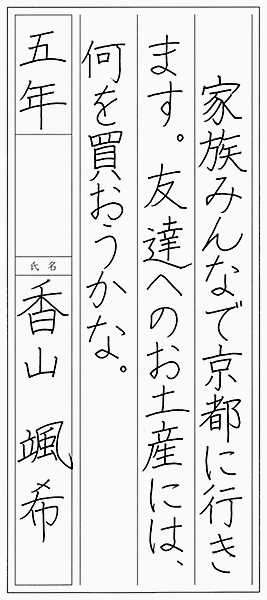 家族みんなで京都に行き
ます。友達へのお土産には、
何を買おうかな。
五年
氏名
香山 颯希